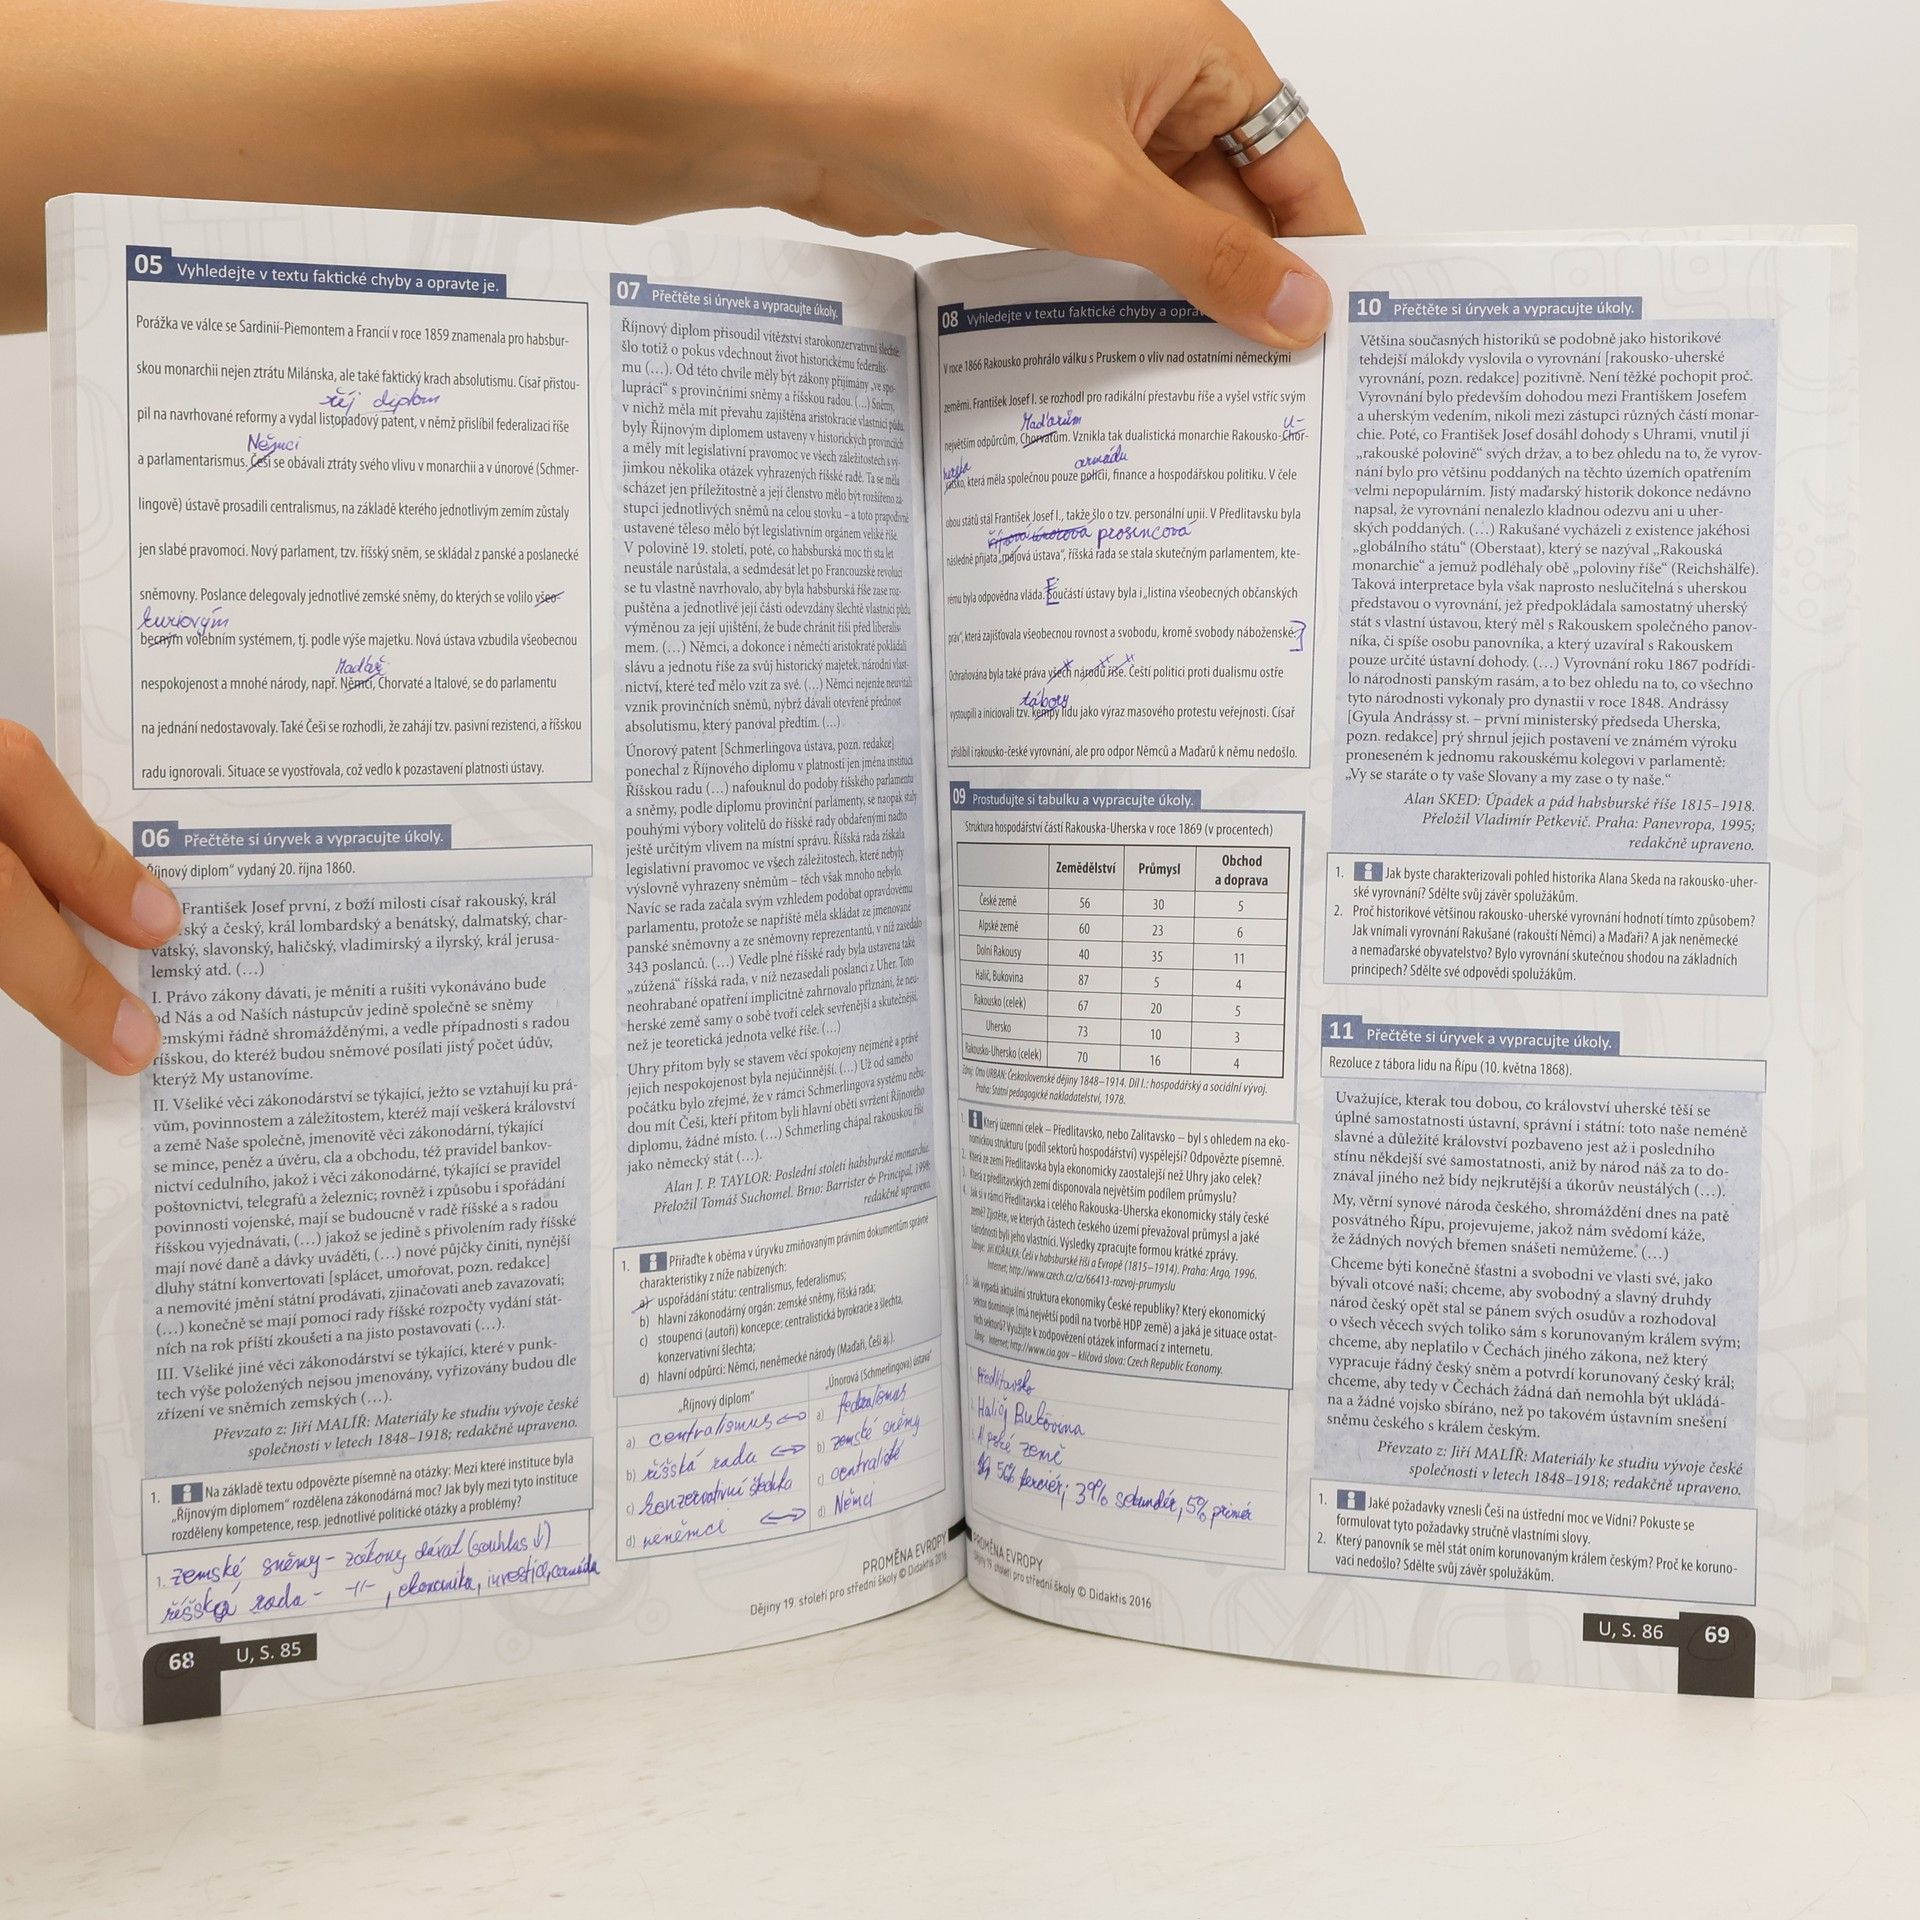 05 Vyhledejte v textu faktické chyby a opravte je.
Porážka ve válce se Sardinií-Piemontem a Francií v roce 1859 znamenala pro habsbur-
skou monarchii nejen ztrátu Milánska, ale také faktický krach absolutismu. Císař přistou-
říj diplom
pil na navrhované reformy a vydal listopadový patent, v němž přislíbil federalizaci říše
Němci
a parlamentarismus. Češi se obávali ztráty svého vlivu v monarchii a v únorové (Schmer-
lingově) ústavě prosadili centralismus, na základě kterého jednotlivým zemím zůstaly
jen slabé pravomoci. Nový parlament, tzv. říšský sněm, se skládal z panské a poslanecké
sněmovny. Poslance delegovaly jednotlivé zemské sněmy, do kterých se volilo všeo-
kuriovým
becným volebním systémem, tj. podle výše majetku. Nová ústava vzbudila všeobecnou
Maďaři
nespokojenost a mnohé národy, např. Němci, Chorvaté a Italové, se do parlamentu
na jednání nedostavovaly. Také Češi se rozhodli, že zahájí tzv. pasivní rezistenci, a říšskou
radu ignorovali. Situace se vyostřovala, což vedlo k pozastavení platnosti ústavy.
06 Přečtěte si úryvek a vypracujte úkoly.
Říjnový diplom“ vydaný 20. října 1860.
František Josef první, z boží milosti císař rakouský, král
ský a český, král lombardský a benátský, dalmatský, char-
vatský, slavonský, haličský, vladimirský a ilyrský, král jerusa-
lemský atd. (…)
I. Právo zákony dávati, je měniti a rušiti vykonáváno bude
od Nás a od Našich nástupcův jedině společně se sněmy
zemskými řádně shromážděnými, a vedle případnosti s radou
říšskou, do kteréž budou sněmové posílati jistý počet údův,
kterýž My ustanovíme.
II. Všeliké věci zákonodárství se týkající, ježto se vztahují ku prá-
vům, povinnostem a záležitostem, kteréž mají veškerá království
a země Naše společně, jmenovitě věci zákonodární, týkající
se mince, peněz a úvěru, cla a obchodu, též pravidel bankov-
nictví cedulního, jakož i věci zákonodárné, týkající se pravidel
poštovnictví, telegrafů a železnic; rovněž i způsobu i spořádání
povinnosti vojenské, mají se budoucně v radě říšské a s radou
říšskou vyjednávati, (…) jakož se jedině s přivolením rady říšské
mají nové daně a dávky uváděti, (…) nové půjčky činiti, nynější
dluhy státní konvertovati [splácet, umořovat, pozn. redakce]
a nemovité jmění státní prodávati, zjinačovati aneb zavazovati;
(…) konečně se mají pomocí rady říšské rozpočty vydání stát-
ních na rok příští zkoušeti a na jisto postavovati (…).
III. Všeliké jiné věci zákonodárství se týkající, které v punk-
tech výše položených nejsou jmenovány, vyřizovány budou dle
zřízení ve sněmích zemských (…).
Převzato z: Jiří MALÍŘ: Materiály ke studiu vývoje české
společnosti v letech 1848–1918; redakčně upraveno.
1. Na základě textu odpovězte písemně na otázky: Mezi které instituce byla
„Říjnovým diplomem“ rozdělena zákonodárná moc? Jak byly mezi tyto instituce
rozděleny kompetence, resp. jednotlivé politické otázky a problémy?
1. zemské sněmy – zákony dávat (souhlas ↓)
říšská rada – -//-, ekonomika, investice, armáda
68 U, S. 85
07 Přečtěte si úryvek a vypracujte úkoly.
Říjnový diplom přisoudil vítězství starokonzervativní šlechtě,
šlo totiž o pokus vdechnout život historickému federalis-
mu (…). Od této chvíle měly být zákony přijímány „ve spo-
lupráci“ s provinčními sněmy a říšskou radou. (…) Sněmy,
v nichž měla mít převahu zajištěna aristokracie vlastnící půdu,
byly Říjnovým diplomem ustaveny v historických provinciích
a měly mít legislativní pravomoc ve všech záležitostech s vý-
jimkou několika otázek vyhrazených říšské radě. Ta se měla
scházet jen příležitostně a její členstvo mělo být rozšířeno zá-
stupci jednotlivých sněmů na celou stovku – a toto prapodivně
ustavené těleso mělo být legislativním orgánem veliké říše.
V polovině 19. století, poté, co habsburská moc tři sta let
neustále narůstala, a sedmdesát let po Francouzské revoluci
se tu vlastně navrhovalo, aby byla habsburská říše zase roz-
puštěna a jednotlivé její části odevzdány šlechtě vlastnící půdu
výměnou za její ujištění, že bude chránit říši před liberalis-
mem. (…) Němci, a dokonce i němečtí aristokraté pokládali
slávu a jednotu říše za svůj historický majetek, národní vlast-
nictví, které teď mělo vzít za své. (…) Němci nejenže neuvítali
vznik provinčních sněmů, nýbrž dávali otevřeně přednost
absolutismu, který panoval předtím. (…)
Únorový patent [Schmerlingova ústava, pozn. redakce]
ponechal z Říjnového diplomu v platnosti jen jména institucí.
Říšskou radu (…) nafouknul do podoby říšského parlamentu
a sněmy, podle diplomu provinční parlamenty, se naopak staly
pouhými výbory volitelů do říšské rady obdařenými nadto
ještě určitým vlivem na místní správu. Říšská rada získala
legislativní pravomoc ve všech záležitostech, které nebyly
výslovně vyhrazeny sněmům – těch však mnoho nebylo.
Navíc se rada začala svým vzhledem podobat opravdovému
parlamentu, protože se napříště měla skládat ze jmenované
panské sněmovny a ze sněmovny reprezentantů, v níž zasedalo
343 poslanců. (…) Vedle plné říšské rady byla ustavena také
„zúžená“ říšská rada, v níž nezasedali poslanci z Uher. Toto
neohrabané opatření implicitně zahrnovalo přiznání, že neu-
herské země samy o sobě tvoří celek sevřenější a skutečnější,
než je teoretická jednota velké říše. (…)
Uhry přitom byly se stavem věcí spokojeny nejméně a právě
jejich nespokojenost byla nejúčinnější. (…) Už od samého
počátku bylo zřejmé, že v rámci Schmerlingova systému nebu-
dou mít Češi, kteří přitom byli hlavní obětí svržení Říjnového
diplomu, žádné místo. (…) Schmerling chápal rakouskou říši
jako německý stát (…).
Alan J. P. TAYLOR: Poslední století habsburské monarchie.
Přeložil Tomáš Suchomel. Brno: Barrister & Principal, 1998;
redakčně upraveno.
1. Přiřaďte k oběma v úryvku zmiňovaným právním dokumentům správné
charakteristiky z níže nabízených:
a) uspořádání státu: centralismus, federalismus;
b) hlavní zákonodárný orgán: zemské sněmy, říšská rada;
c) stoupenci (autoři) koncepce: centralistická byrokracie a šlechta,
konzervativní šlechta;
d) hlavní odpůrci: Němci, neněmecké národy (Maďaři, Češi aj.).
„Říjnový diplom“ „Únorová (Schmerlingova) ústava“
a) centralismus ⇔ a) federalismus
b) říšská rada ⇔ b) zemské sněmy
c) konzervativní šlechta c) centralisté
d) neněmci ⇔ d) Němci
PROMĚNA EVROPY
Dějiny 19. století pro střední školy © Didaktis 2016
08 Vyhledejte v textu faktické chyby a oprav
V roce 1866 Rakousko prohrálo válku s Pruskem o vliv nad ostatními německými
zeměmi. František Josef I. se rozhodl pro radikální přestavbu říše a vyšel vstříc svým
Maďarům U-
největším odpůrcům, Chorvatům. Vznikla tak dualistická monarchie Rakousko-Chor-
hersko armádu
vatsko, která měla společnou pouze policii, finance a hospodářskou politiku. V čele
obou států stál František Josef I., takže šlo o tzv. personální unii. V Předlitavsku byla
říjnová únorová prosincová
následně přijata „májová ústava“, říšská rada se stala skutečným parlamentem, kte-
rému byla odpovědna vláda. Součástí ústavy byla i „listina všeobecných občanských
práv“, která zajišťovala všeobecnou rovnost a svobodu, kromě svobody náboženské.
Ochraňována byla také práva všech národů říše. Čeští politici proti dualismu ostře
tábory
vystoupili a iniciovali tzv. kempy lidu jako výraz masového protestu veřejnosti. Císař
přislíbil i rakousko-české vyrovnání, ale pro odpor Němců a Maďarů k němu nedošlo.
09 Prostudujte si tabulku a vypracujte úkoly.
Struktura hospodářství částí Rakouska-Uherska v roce 1869 (v procentech)
Zemědělství Průmysl Obchod a doprava
České země 56 30 5
Alpské země 60 23 6
Dolní Rakousy 40 35 11
Halič, Bukovina 87 5 4
Rakousko (celek) 67 20 5
Uhersko 73 10 3
Rakousko-Uhersko (celek) 70 16 4
Zdroj: Otto URBAN: Československé dějiny 1848–1914. Díl I.: hospodářský a sociální vývoj.
Praha: Státní pedagogické nakladatelství, 1978.
1. Který územní celek – Předlitavsko, nebo Zalitavsko – byl s ohledem na eko-
nomickou strukturu (podíl sektorů hospodářství) vyspělejší? Odpovězte písemně.
2. Která ze zemí Předlitavska byla ekonomicky zaostalejší než Uhry jako celek?
3. Která z předlitavských zemí disponovala největším podílem průmyslu?
4. Jak si v rámci Předlitavska i celého Rakouska-Uherska ekonomicky stály české
země? Zjistěte, ve kterých částech českého území převažoval průmysl a jaké
národnosti byli jeho vlastníci. Výsledky zpracujte formou krátké zprávy.
Zdroje: Jiří KOŘALKA: Češi v habsburské říši a Evropě (1815–1914). Praha: Argo, 1996.
Internet; http://www.czech.cz/cz/66413-rozvoj-prumyslu
5. Jak vypadá aktuální struktura ekonomiky České republiky? Který ekonomický
sektor dominuje (má největší podíl na tvorbě HDP země) a jaká je situace ostat-
ních sektorů? Využijte k zodpovězení otázek informací z internetu.
Zdroj: Internet; http://www.cia.gov – klíčová slova: Czech Republic Economy.
Předlitavsko
Halič, Bukovina
Alpské země
56% terciér; 39% sekundér, 5% primér
PROMĚNA EVROPY
Dějiny 19. století pro střední školy © Didaktis 2016
10 Přečtěte si úryvek a vypracujte úkoly.
Většina současných historiků se podobně jako historikové
tehdejší málokdy vyslovila o vyrovnání [rakousko-uherské
vyrovnání, pozn. redakce] pozitivně. Není těžké pochopit proč.
Vyrovnání bylo především dohodou mezi Františkem Josefem
a uherským vedením, nikoli mezi zástupci různých částí monar-
chie. Poté, co František Josef dosáhl dohody s Uhrami, vnutil jí
„rakouské polovině“ svých držav, a to bez ohledu na to, že vyrov-
nání bylo pro většinu poddaných na těchto územích opatřením
velmi nepopulárním. Jistý maďarský historik dokonce nedávno
napsal, že vyrovnání nenalezlo kladnou odezvu ani u uher-
ských poddaných. (…) Rakušané vycházeli z existence jakéhosi
„globálního státu“ (Oberstaat), který se nazýval „Rakouská
monarchie“ a jemuž podléhaly obě „poloviny říše“ (Reichshälfe).
Taková interpretace byla však naprosto neslučitelná s uherskou
představou o vyrovnání, jež předpokládala samostatný uherský
stát s vlastní ústavou, který měl s Rakouskem společného panov-
níka, či spíše osobu panovníka, a který uzavíral s Rakouskem
pouze určité ústavní dohody. (…) Vyrovnání roku 1867 podřídi-
lo národnosti panským rasám, a to bez ohledu na to, co všechno
tyto národnosti vykonaly pro dynastii v roce 1848. Andrássy
[Gyula Andrássy st. – první ministerský předseda Uherska,
pozn. redakce] prý shrnul jejich postavení ve známém výroku
proneseném k jednomu rakouskému kolegovi v parlamentě:
„Vy se staráte o ty vaše Slovany a my zase o ty naše.“
Alan SKED: Úpadek a pád habsburské říše 1815–1918.
Přeložil Vladimír Petkevič. Praha: Panevropa, 1995;
redakčně upraveno.
1. Jak byste charakterizovali pohled historika Alana Skeda na rakousko-uher-
ské vyrovnání? Sdělte svůj závěr spolužákům.
2. Proč historikové většinou rakousko-uherské vyrovnání hodnotí tímto způsobem?
Jak vnímali vyrovnání Rakušané (rakouští Němci) a Maďaři? A jak neněmecké
a nemaďarské obyvatelstvo? Bylo vyrovnání skutečnou shodou na základních
principech? Sdělte své odpovědi spolužákům.
11 Přečtěte si úryvek a vypracujte úkoly.
Rezoluce z tábora lidu na Řípu (10. května 1868).
Uvažujíce, kterak tou dobou, co království uherské těší se
úplné samostatnosti ústavní, správní i státní: toto naše neméně
slavné a důležité království pozbaveno jest až i posledního
stínu někdejší své samostatnosti, aniž by národ náš za to do-
znával jiného než bídy nejkrutější a úkorův neustálých (…).
My, věrní synové národa českého, shromáždění dnes na patě
posvátného Řípu, projevujeme, jakož nám svědomí káže,
že žádných nových břemen snášeti nemůžeme. (…)
Chceme býti konečně šťastni a svobodni ve vlasti své, jako
bývali otcové naši; chceme, aby svobodný a slavný druhdy
národ český opět stal se pánem svých osudův a rozhodoval
o všech věcech svých toliko sám s korunovaným králem svým;
chceme, aby neplatilo v Čechách jiného zákona, než který
vypracuje řádný český sněm a potvrdí korunovaný český král;
chceme, aby tedy v Čechách žádná daň nemohla být ukládá-
na a žádné vojsko sbíráno, než po takovém ústavním snešení
sněmu českého s králem českým.
Převzato z: Jiří MALÍŘ: Materiály ke studiu vývoje české
společnosti v letech 1848–1918; redakčně upraveno.
1. Jaké požadavky vznesli Češi na ústřední moc ve Vídni? Pokuste se
formulovat tyto požadavky stručně vlastními slovy.
2. Který panovník se měl stát oním korunovaným králem českým? Proč ke koruno-
vaci nedošlo? Sdělte svůj závěr spolužákům.
U, S. 86 69